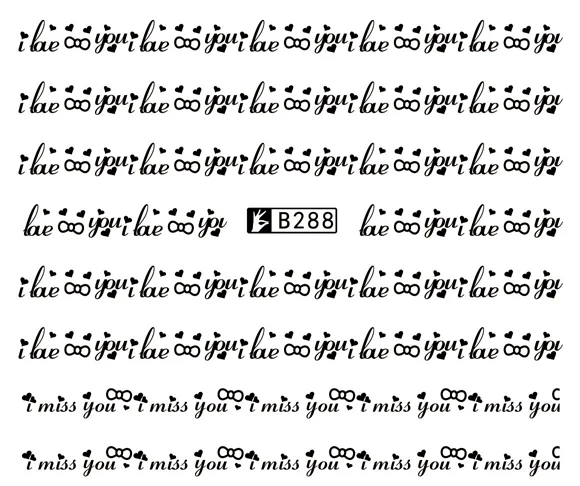 i love you i love you i love you i love you i love you
i love you i love you i love you i love you i love you
i love you i love you i love you i love you i love you
love you i love you B288 love you i love you
i love you i love you i love you i love you i love you
i love you i love you i love you i love you i love you
i miss you i miss you i miss you i miss you i miss you
i miss you i miss you i miss you i miss you i miss you